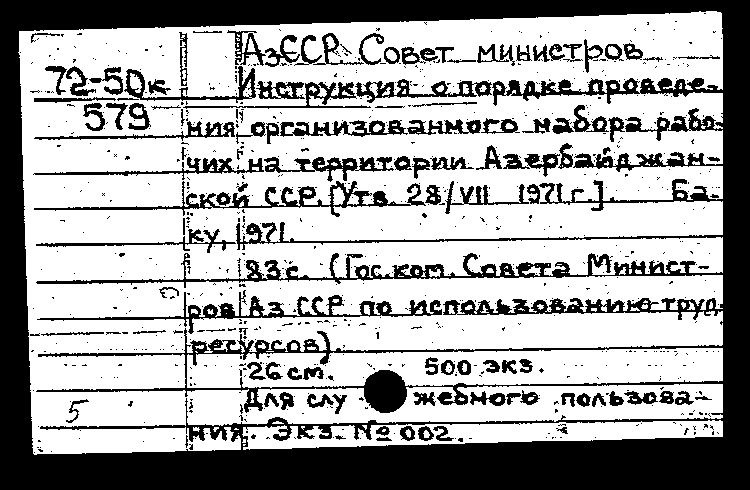 АзССР. Совет министров
72-50к Инструкция о порядке проведе-
579 ния организованного набора рабо-
чих на территории Азербайджан-
ской ССР. [Утв. 28/VII 1971 г.]. Ба-
ку, 1971.
83 с. (Гос. ком. Совета Минист-
ров Аз ССР по использованию труд.
ресурсов).
26 см. 500 экз.
5 Для служебного пользова-
ния. Экз. № 002.